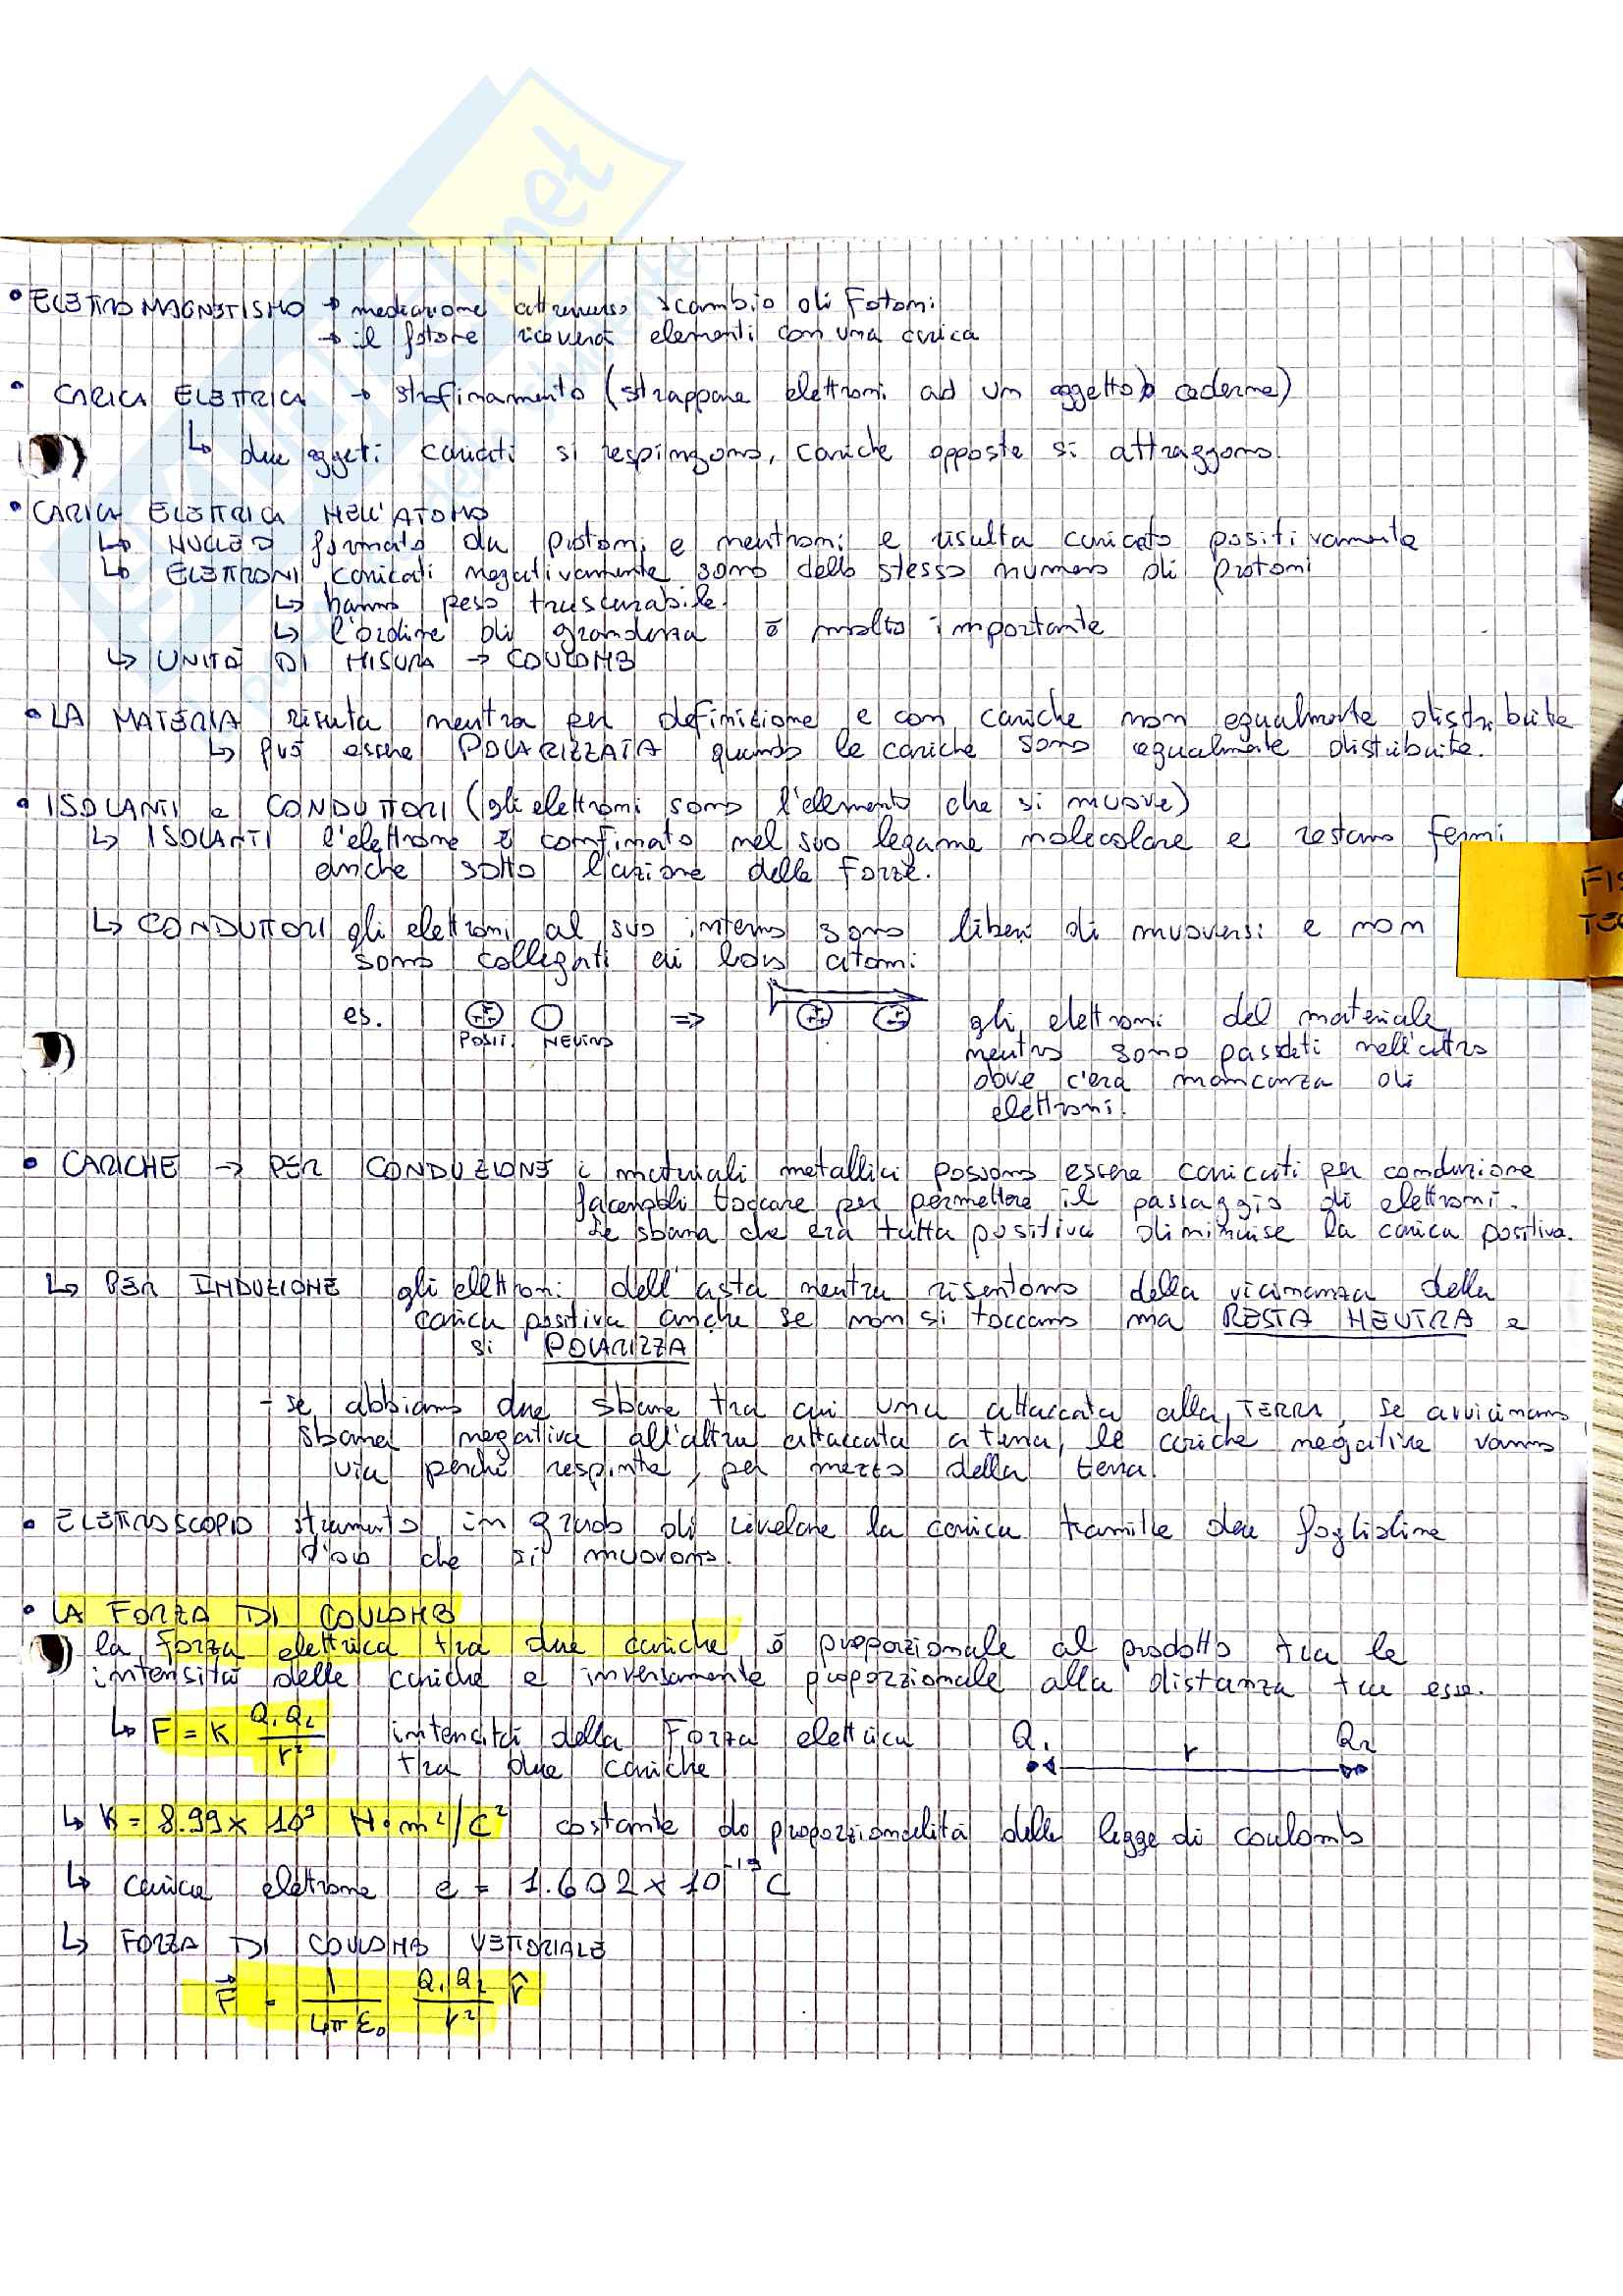 • ELETTROMAGNETISMO → mediazione attraverso scambio di Fotoni
→ il fotone riceverà elementi con una carica
• CARICA ELETTRICA → strofinamento (strappare elettroni ad un oggetto o cederne)
↳ due oggeti caricati si respingono, cariche opposte si attraggono.
• CARICA ELETTRICA NELL'ATOMO
↳ NUCLEO formato da protoni e neutroni e risulta caricato positivamente
↳ ELETTRONI caricati negativamente sono dello stesso numero di protoni
↳ hanno peso trascurabile.
↳ l'ordine di grandezza è molto importante
↳ UNITÀ DI MISURA → COULOMB
• LA MATERIA risulta neutra per definizione e con cariche non egualmente distribuite
↳ può essere POLARIZZATA quando le cariche sono egualmente distribuite.
• ISOLANTI e CONDUTTORI (gli elettroni sono l'elemento che si muove)
↳ ISOLANTI l'elettrone è confinato nel suo legame molecolare e restano fermi
anche sotto l'azione delle forze.
↳ CONDUTTORI gli elettroni al suo interno sono liberi di muoversi e non
sono collegati ai loro atomi
es. ++ ⇒ ++ gli elettroni del materiale
POSIT. NEUTRO neutro sono passati nell'altro
dove c'era mancanza di
elettroni.
• CARICHE → PER CONDUZIONE i materiali metallici possono essere caricati per conduzione
facendoli toccare per permettere il passaggio di elettroni.
Le sbarra che era tutta positiva diminuise la carica positiva.
↳ PER INDUZIONE gli elettroni dell'asta neutra risentono della vicinanza della
carica positiva anche se non si toccano ma RESTA NEUTRA e
si POLARIZZA
- se abbiamo due sbarre tra cui una attaccata alla TERRA, se avviciniamo
sbarra negativa all'altra attaccata a terra, le cariche negative vanno
via perchè respinte, per mezzo della terra
• ELETTROSCOPIO strumento in grado di rivelare la carica tramite due foglioline
d'oro che si muovono.
• LA FORZA DI COULOMB
la forza elettrica tra due cariche è proporzionale al prodotto tra le
intensità delle cariche e inversamente proporzionale alla distanza tra esse.
↳ F = K Q₁Q₂/r² intensità della Forza elettrica Q₁ r Q₂
tra due cariche
↳ K = 8.99 × 10⁹ N•m²/C² costante di proporzionalità della legge di coulomb
↳ carica elettrone e = 1.602 × 10⁻¹⁹ C
↳ FORZA DI COULOMB VETTORIALE
F⃗ = 1/4πε₀ Q₁Q₂/r² r̂
FIS
TEC